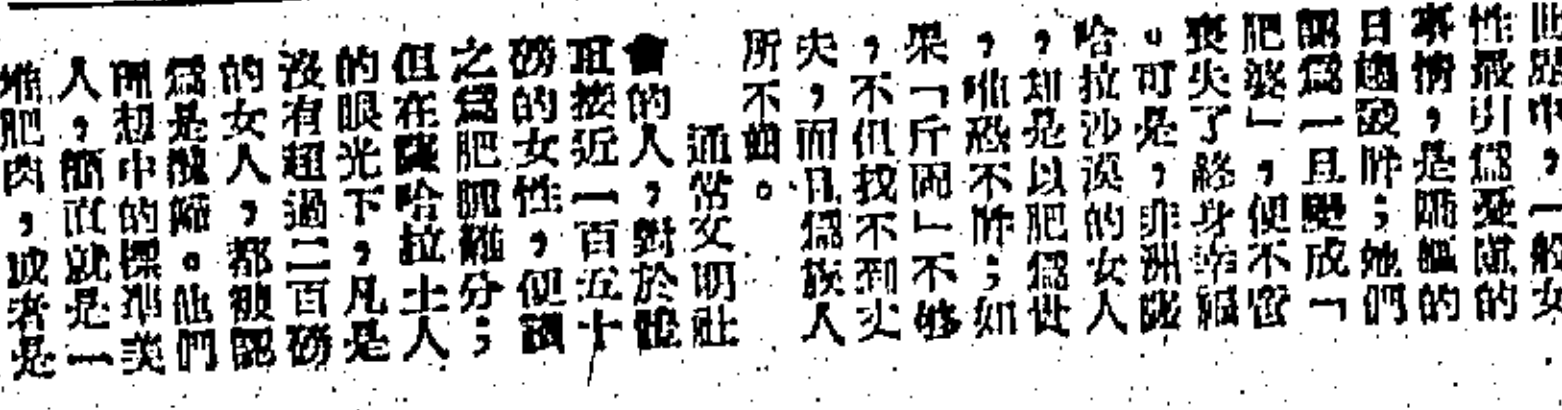 中，一般女
性最引爲憂慮的
事情，是嬌軀的
日趨發胖；她們
認爲一旦變成「
肥婆」，便不啻
喪失了終身幸福
。可是，非洲薩
哈拉沙漠的女人
，却是以肥爲世
，唯恐不胖；如
果「斤兩」不够
，不但找不到丈
夫，而且爲族人
所不齒。
通常文明社
會的人，對於體
重接近一百五十
磅的女性，便謂
之爲肥腫難分；
但在薩哈拉土人
的眼光下，凡是
沒有超過二百磅
的女人，都被認
爲是醜陋。他們
理想中的標準美
人，簡直就是一
堆肥肉，或者是